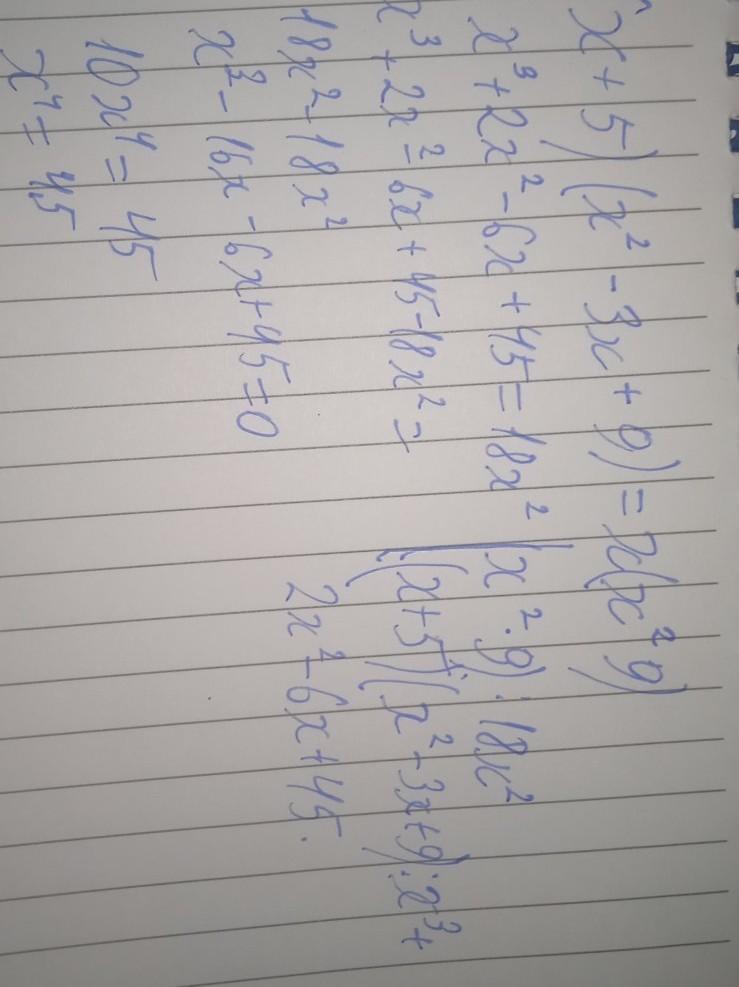 x + 5) (x² - 3x + 9) = x(x² 9)
x³ + 2x² - 6x + 45 = 18x² (x² · 9) : 18x²
x³ + 2x² - 6x + 45 - 18x² = ((x + 5) (x² - 3x + 9) : x³ +
18x² - 18x² 2x² - 6x + 45.
x² - 16x - 6x + 45 = 0
10x⁴ = 45
x⁴ = 45